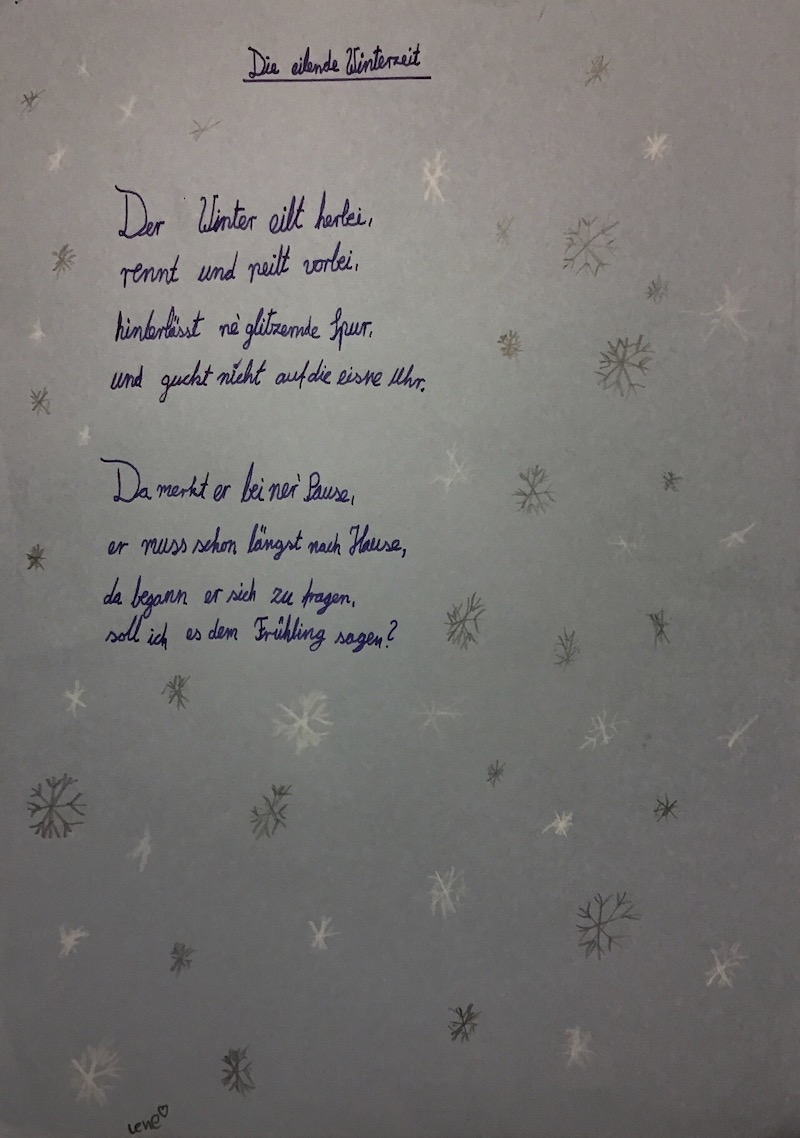 Die eilende Winterzeit
Der Winter eilt herbei,
rennt und peilt vorbei,
hinterlässt ne' glitzernde Spur,
und guckt nicht auf die eisne Uhr.
Da merkt er bei ner' Pause,
er muss schon längst nach Hause,
da begann er sich zu fragen,
soll ich es dem Frühling sagen?
Lene